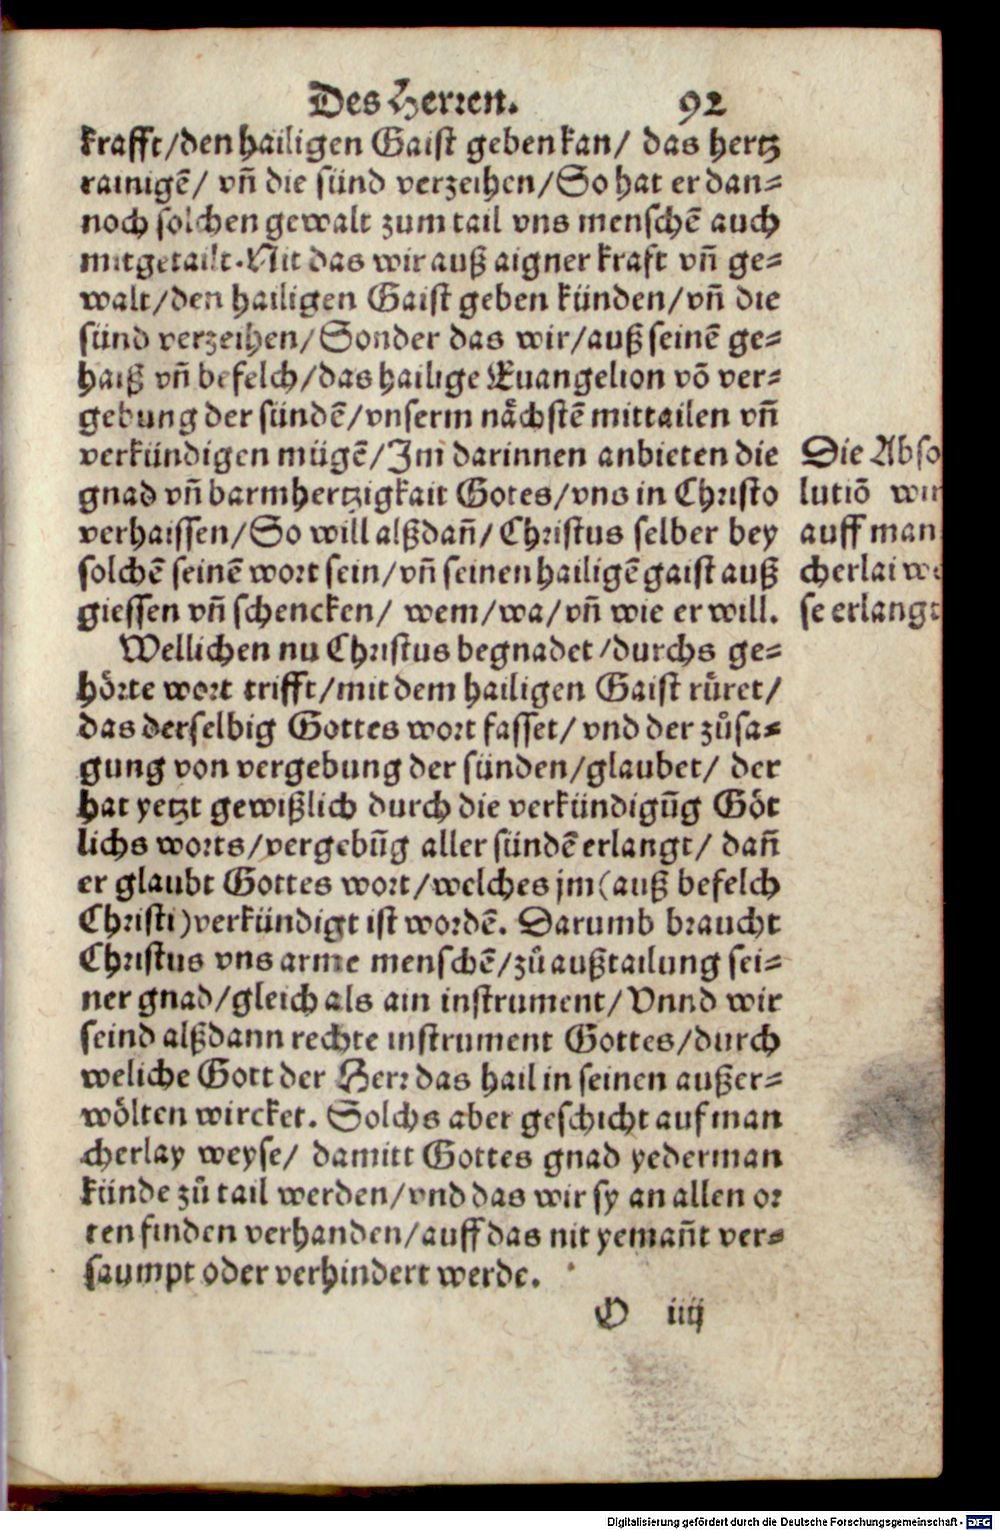 Des Herren. 92
krafft/den hailigen Gaist geben kan/ das hertz
rainigẽ/ vñ die sünd verzeihen/So hat er dan=
noch solchen gewalt zum tail vns menschẽ auch
mitgetailt. Nit das wir auß aigner kraft vñ ge=
walt/den hailigen Gaist geben künden/vñ die
sünd verzeihen/Sonder das wir/auß seinẽ ge=
haiß vñ befelch/das hailige Euangelion võ ver=
gebung der sündẽ/vnserm nächstẽ mittailen vñ
verkündigen mügẽ/Im darinnen anbieten die
gnad vñ barmhertzigkait Gotes/vns in Christo
verhaissen/So will alßdañ/ Christus selber bey
solchẽ seinẽ wort sein/vñ seinen hailigẽ gaist auß
giessen vñ schencken/ wem/wa/vñ wie er will.
Die Abso
lutiõ wir
auff man
cherlai we
se erlangt
Wellichen nu Christus begnadet/durchs ge=
hörte wort trifft/mit dem hailigen Gaist rüret/
das derselbig Gottes wort fasset/ vnd der zůsa=
gung von vergebung der sünden/glaubet/ der
hat yetzt gewißlich durch die verkündigũg Göt
lichs worts/vergebũg aller sündẽ erlangt/ dañ
er glaubt Gottes wort/welches jm(auß befelch
Christi)verkündigt ist wordẽ. Darumb braucht
Christus vns arme menschẽ/zů außtailung sei=
ner gnad/gleich als ain instrument/Vnnd wir
seind alßdann rechte instrument Gottes/durch
weliche Gott der Herr das hail in seinen außer=
wölten wircket. Solchs aber geschicht auf man
cherlay weyse/ damitt Gottes gnad yederman
künde zů tail werden/vnd das wir sy an allen or
ten finden verhanden/auff das nit yemañt ver=
saumpt oder verhindert werde.
O iiij
Digitalisierung gefördert durch die Deutsche Forschungsgemeinschaft - DFG